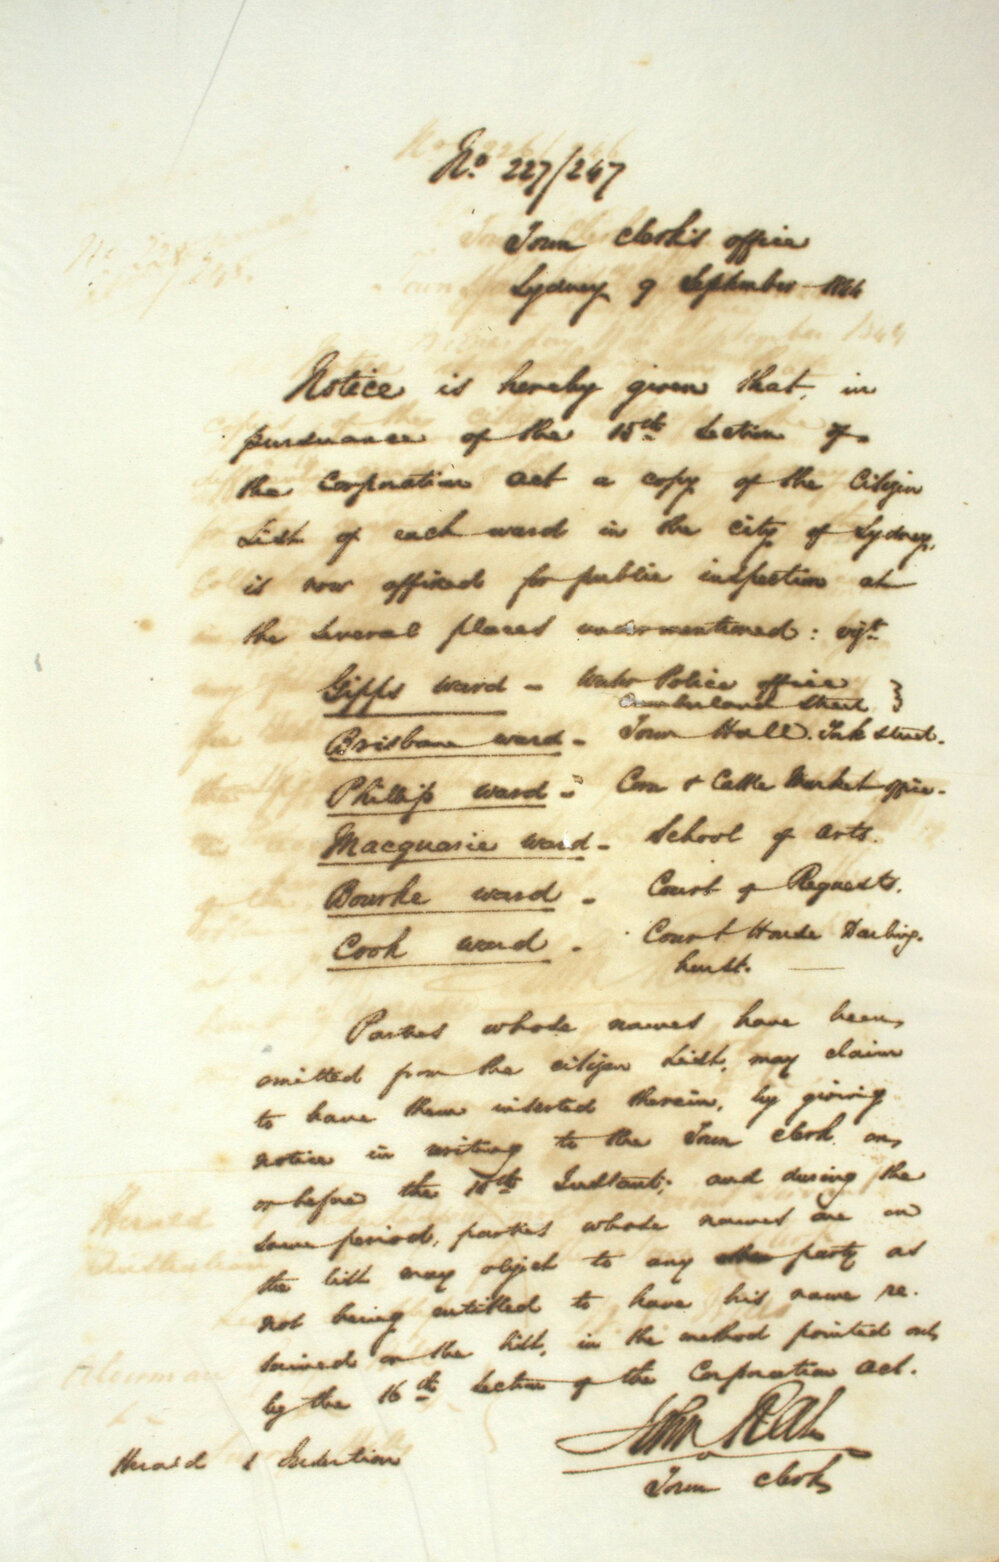 No. 227/247
Town Clerk's office
Sydney 9 September 1844
Notice is hereby given that, in
pursuance of the 15th Section of
the Corporation Act a copy of the Citizen
List of each ward in the City of Sydney,
is now affixed for public inspection at
the several places undermentioned: vizt
Gipps Ward - Water Police office
Cumberland Street
Brisbane Ward - Town Hall. York Street.
Phillip Ward - Corn & Cattle Market office.
Macquarie Ward - School of Arts.
Bourke Ward - Court of Requests.
Cook Ward - Court House Darling-
hurst.
Parties whose names have been
omitted from the citizen List, may claim
to have them inserted therein, by giving
notice in writing to the Town Clerk on
or before the 15th Instant; and during the
same period, parties whose names are on
the list may object to any party as
not being entitled to have his name re-
tained on the list, in the method pointed out
by the 16th Section of the Corporation Act.
John
Town Clerk
Herald 1 Insertion